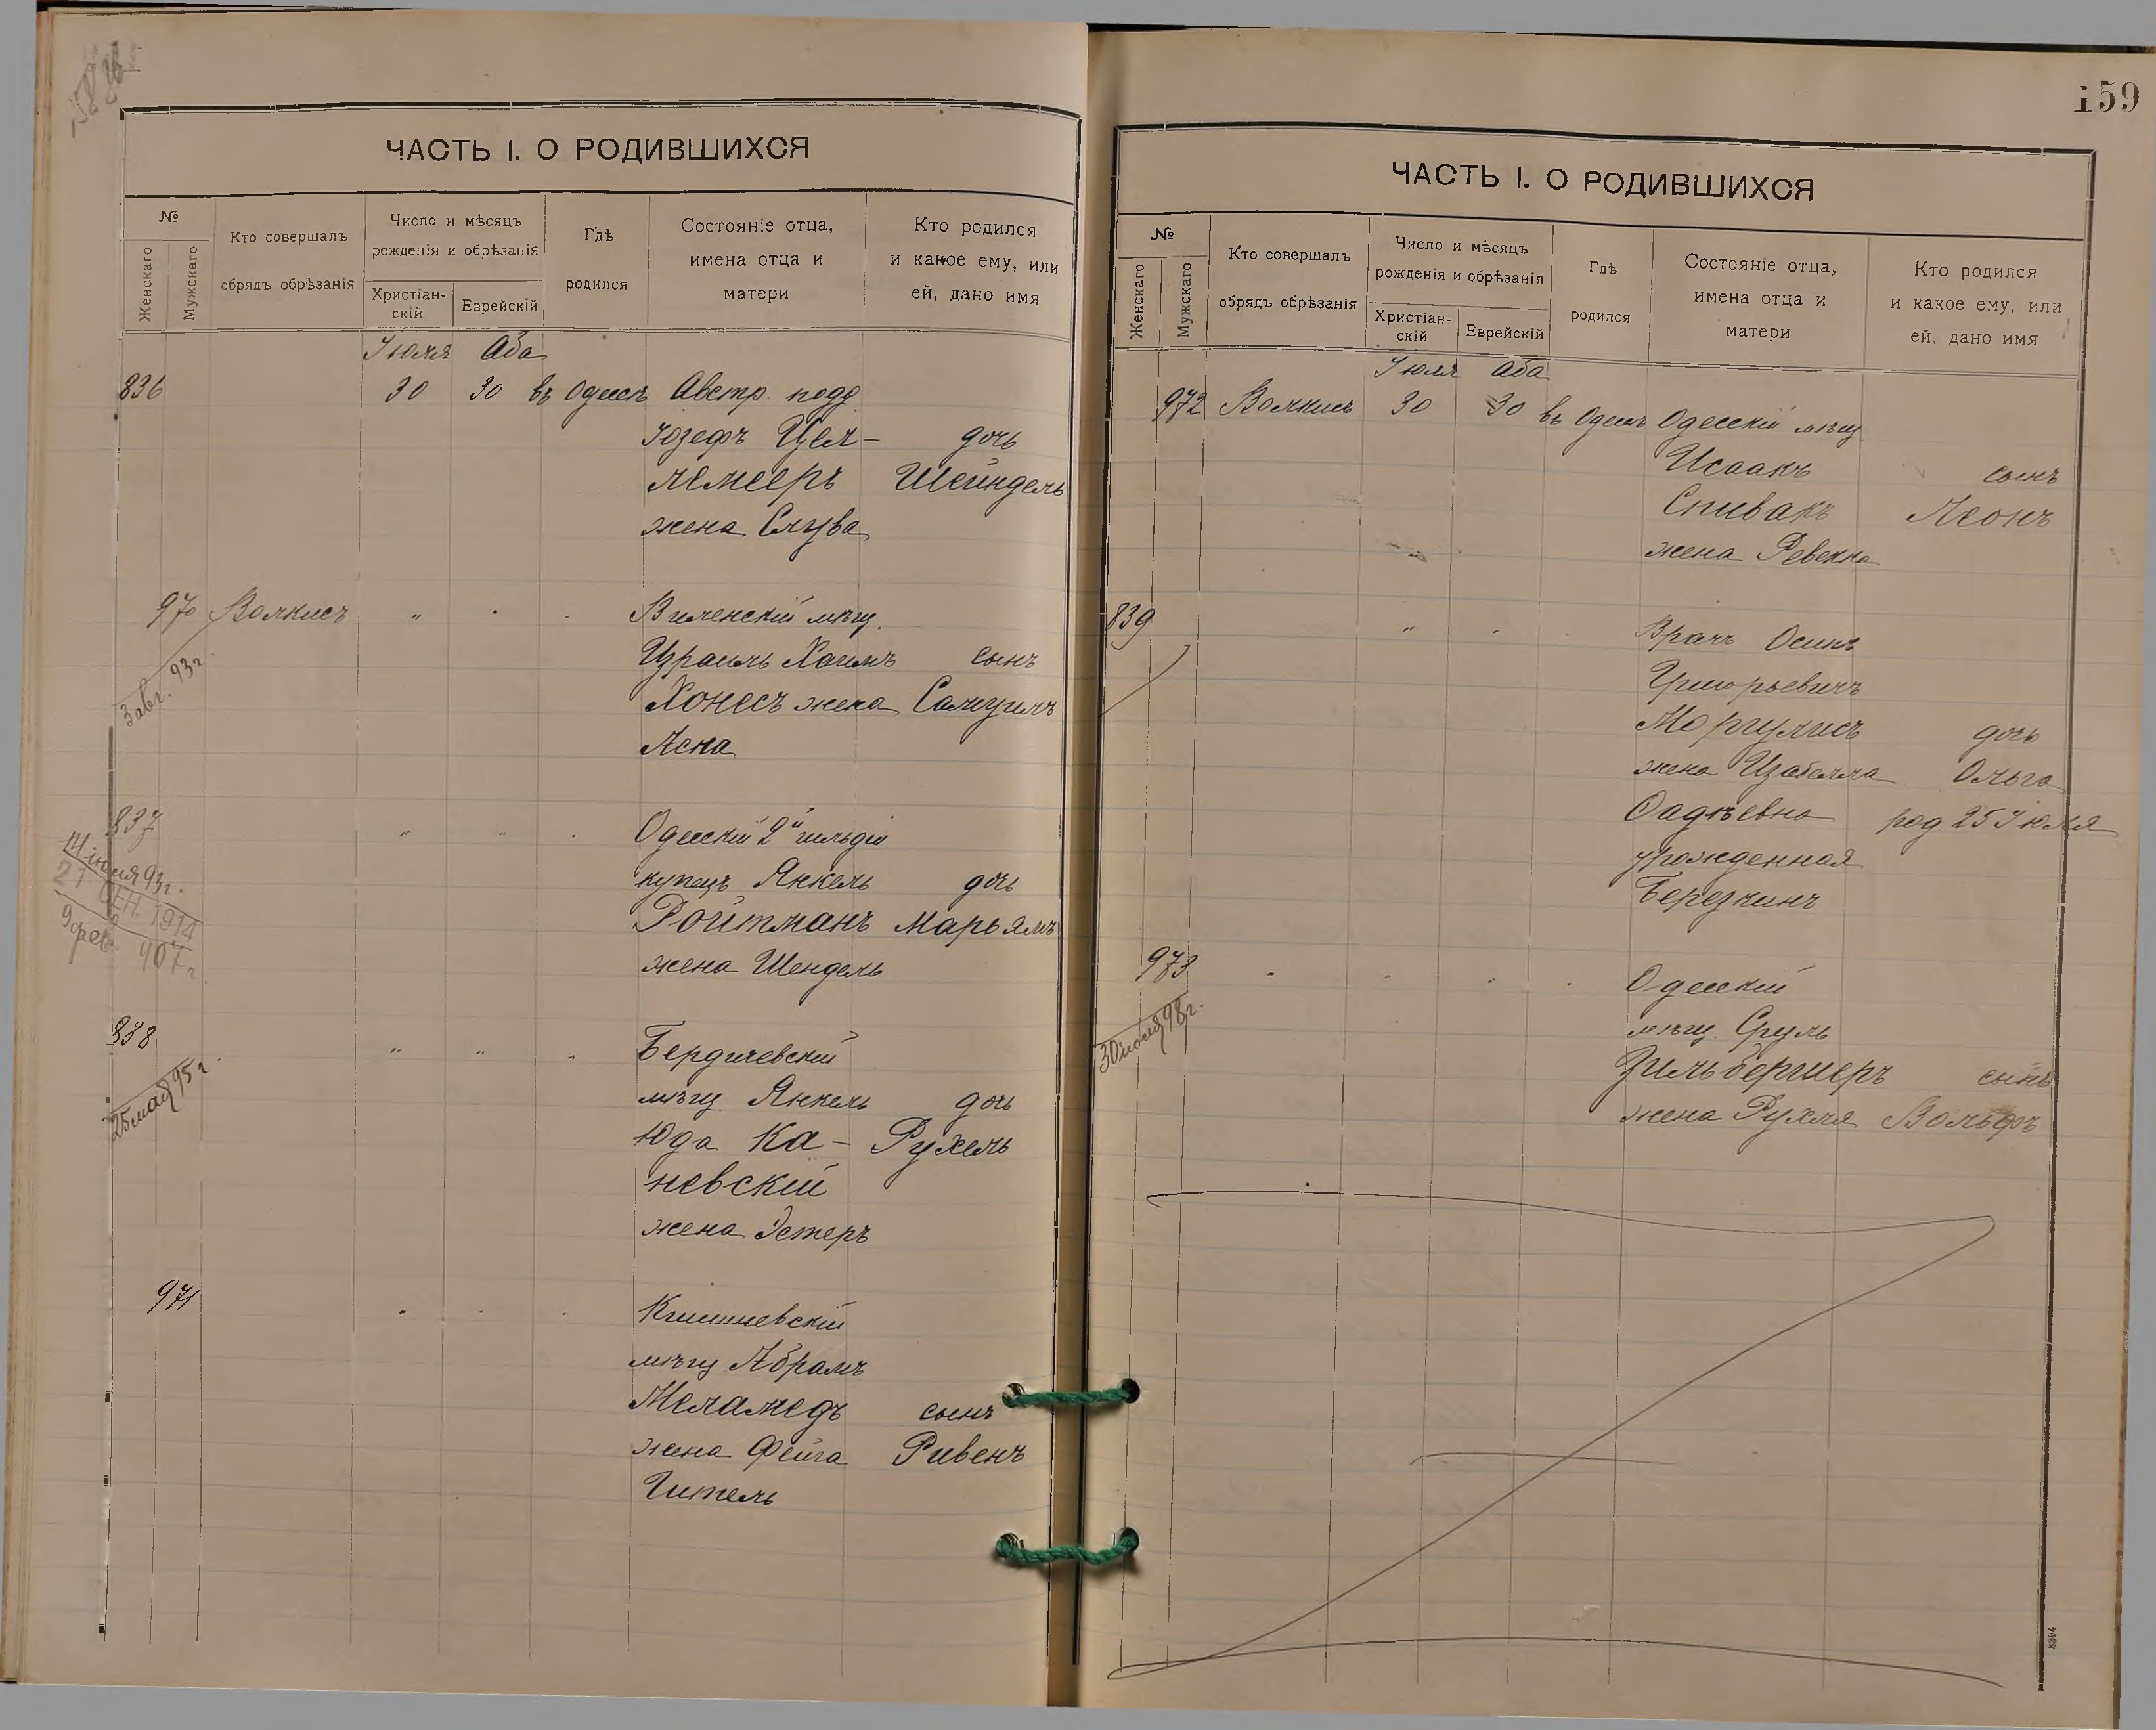 ЧАСТЬ I. О РОДИВШИХСЯ
№
Женскаго
Мужскаго
Кто совершалъ
обрядъ обрѣзанія
Число и мѣсяцъ
рожденія и обрѣзанія
Христіан-
скій
Еврейскій
Гдѣ
родился
Состояніе отца,
имена отца и
матери
Кто родился
и какое ему, или
ей, дано имя
Іюля Аба
836 30 30 въ Одессѣ Австр. подд
Іозефъ Цел-
дочь
лемееръ Шейндель
жена Слува
970 Волкисъ " " " Виленскій мѣщ.
3 авг. 93 г.
Израиль Хаимъ сынъ
Хонесъ жена Самуилъ
Асна
837 " " " Одесскій 2й гильдіи
14 іюня 93 г.
21 СЕН. 1914
9 фев. 907 г
купецъ Янкель дочь
Ройтманъ Марьямъ
жена Шендель
838 " " " Бердичевскій
25 мая 95 г.
мѣщ Янкель дочь
Юда Ка- Рухель
невскій
жена Эстеръ
971 " " " Кишиневскій
мѣщ Абрамъ
Меламедъ сынъ
жена Фейга Ривенъ
Гитель
159
ЧАСТЬ I. О РОДИВШИХСЯ
№
Женскаго
Мужскаго
Кто совершалъ
обрядъ обрѣзанія
Число и мѣсяцъ
рожденія и обрѣзанія
Христіан-
скій
Еврейскій
Гдѣ
родился
Состояніе отца,
имена отца и
матери
Кто родился
и какое ему, или
ей, дано имя
Іюля Аба
972 Волкисъ 30 30 въ Одессѣ Одесскій мѣщ
Исаакъ сынъ
Спивакъ Леонъ
жена Ревекка
839 " " " Врачъ Осипъ
Григорьевичъ
Моргулисъ дочь
жена Изабелла Ольга
Фадѣевна род 25 Іюля
урожденная
Березкинъ
973 " " " " Одесскій
30 іюля 98 г.
мѣщ. Сруль
Зильбершеръ сынъ
жена Рухля Вольфъ